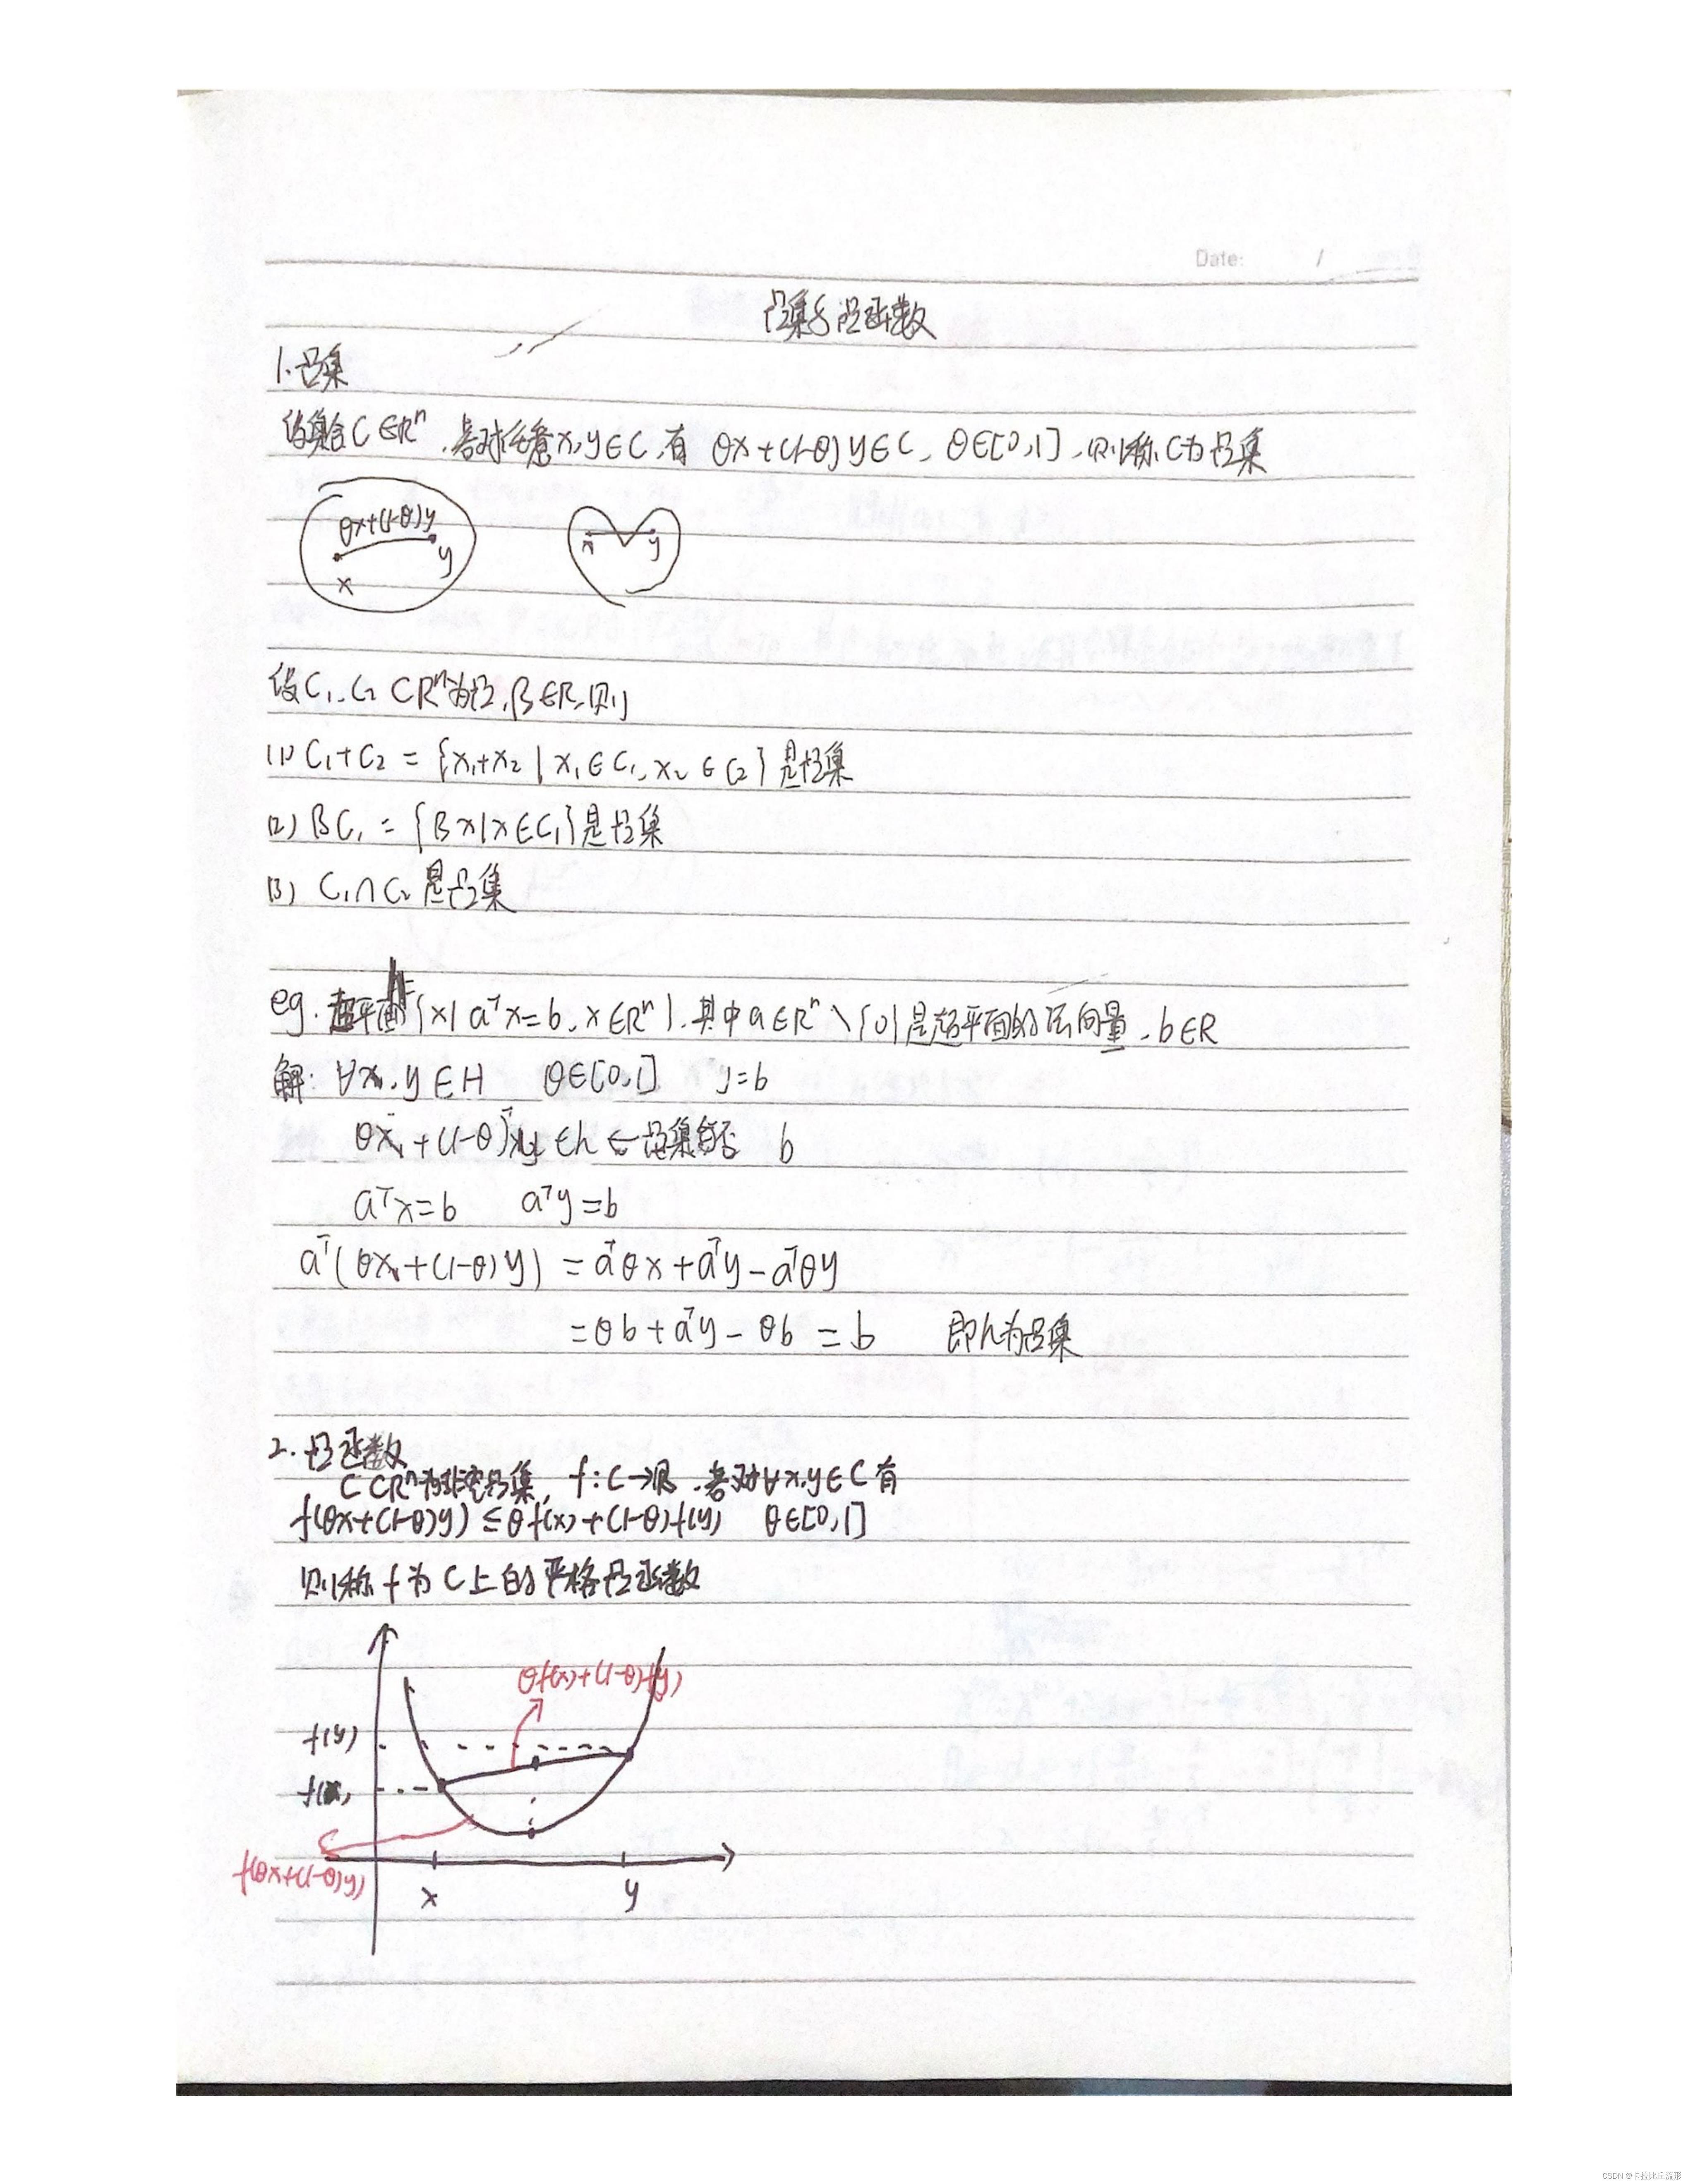 Date: /
凸集与凸函数
1.凸集
设集合C∈Rⁿ,若对任意x,y∈C,有 θx+(1-θ)y∈C, θ∈[0,1],则称C为凸集
θx+(1-θ)y
x y
x y
设C₁,C₂⊂Rⁿ为凸,β∈R,则
(1) C₁+C₂={x₁+x₂|x₁∈C₁,x₂∈C₂}是凸集
(2) βC₁={βx|x∈C₁}是凸集
(3) C₁∩C₂是凸集
eg.超平面H={x|aᵀx=b,x∈Rⁿ},其中a∈Rⁿ\{0}是超平面的法向量,b∈R
解: ∀x,y∈H θ∈[0,1] y=b
θx+(1-θ)y∈h ⇐凸集 b
aᵀx=b aᵀy=b
aᵀ(θx+(1-θ)y)=aᵀθx+aᵀy-aᵀθy
=θb+aᵀy-θb=b 即h为凸集
2.凸函数
C⊂Rⁿ为非空凸集, f:C→R,若对∀x,y∈C有
f(θx+(1-θ)y)≤θf(x)+(1-θ)f(y) θ∈[0,1]
则称f为C上的严格凸函数
θf(x)+(1-θ)f(y)
f(y)
f(x)
f(θx+(1-θ)y)
x y
CSDN @卡拉比丘流形